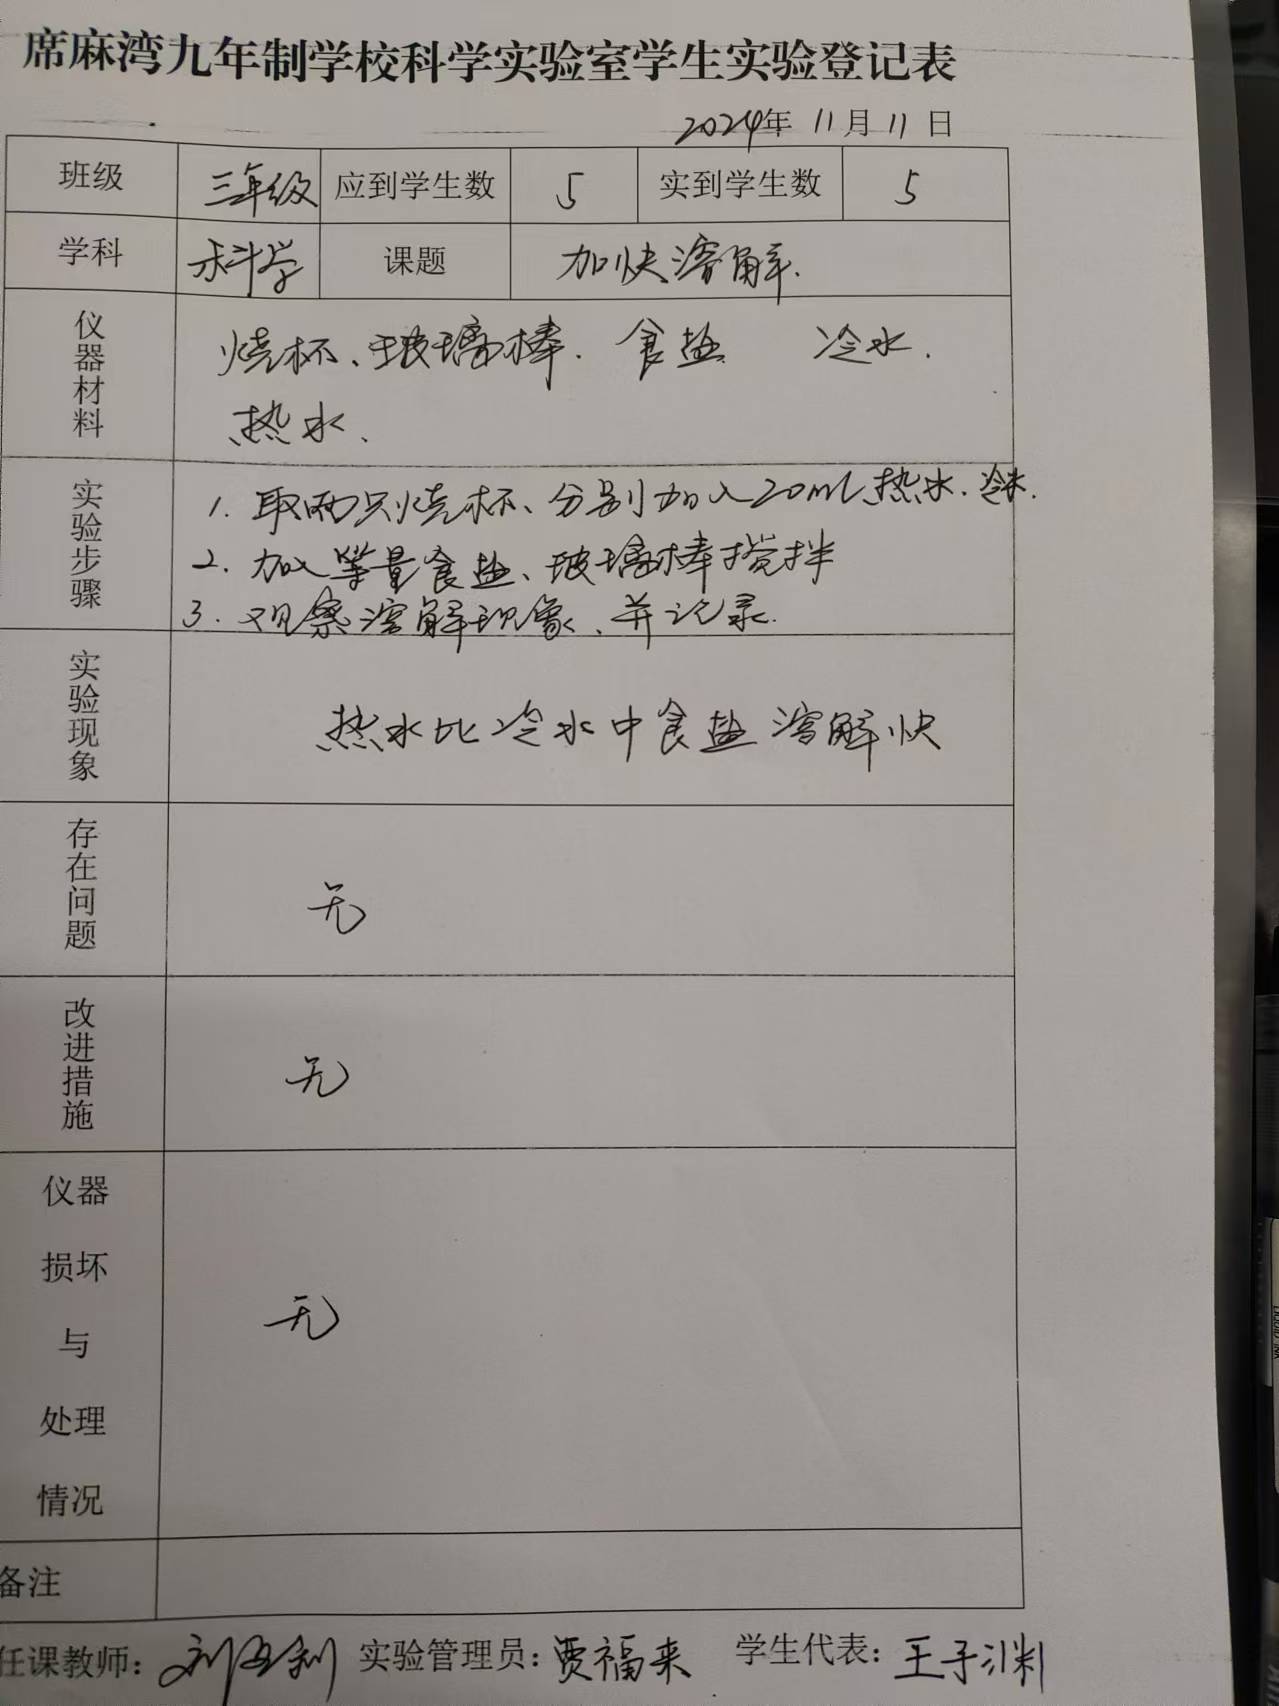 席麻湾九年制学校科学实验室学生实验登记表
2024年 11月 11日
班级 三年级 应到学生数 5 实到学生数 5
学科 科学 课题 加快溶解.
仪器材料 烧杯、玻璃棒. 食盐 冷水.
热水、
实验步骤 1. 取两只烧杯、分别加入20mL热水.冷水.
2. 加入等量食盐、玻璃棒搅拌
3. 观察溶解现象、并记录.
实验现象 热水比冷水中食盐溶解快
存在问题 无
改进措施 无
仪器
损坏
与 无
处理
情况
备注
任课教师: 实验管理员: 贾福来 学生代表: 王子渊